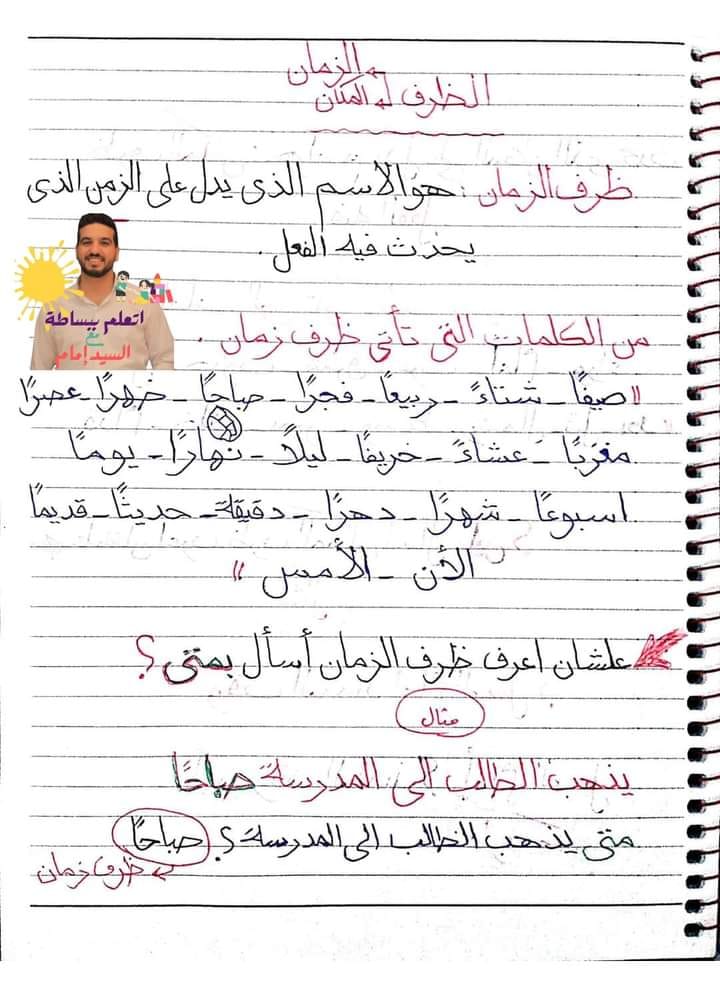 الزمان
الظرف ↲ المكان
ظرف الزمان : هو الاسم الذى يدل على الزمن الذى
يحدث فيه الفعل .
اتعلم ببساطة
مع
السيد إمام
من الكلمات التى تأتى ظرف زمان .
" صيفًا - شتاءً - ربيعًا - فجرًا - صباحًا - ظهرًا - عصرًا
مغربًا - عشاءً - خريفًا - ليلًا - نهارًا - يومًا
اسبوعًا - شهرًا - دهرًا - دقيقة - حديثًا - قديمًا
الأن - الأمس "
علشان اعرف ظرف الزمان أسأل بمتى ؟
مثال
يذهب الطالب إلى المدرسة صباحًا
متى يذهب الطالب الى المدرسة ؟ صباحًا
ظرف زمان